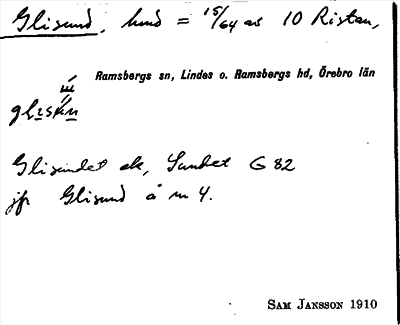 Glisund, hmd = 15/64 as 10 Ristan,
Ramsbergs sn, Lindes o. Ramsbergs hd, Örebro län
Glisundet ek, Sundet G 82
jfr Glisund å nr 4.
SAM JANSSON 1910